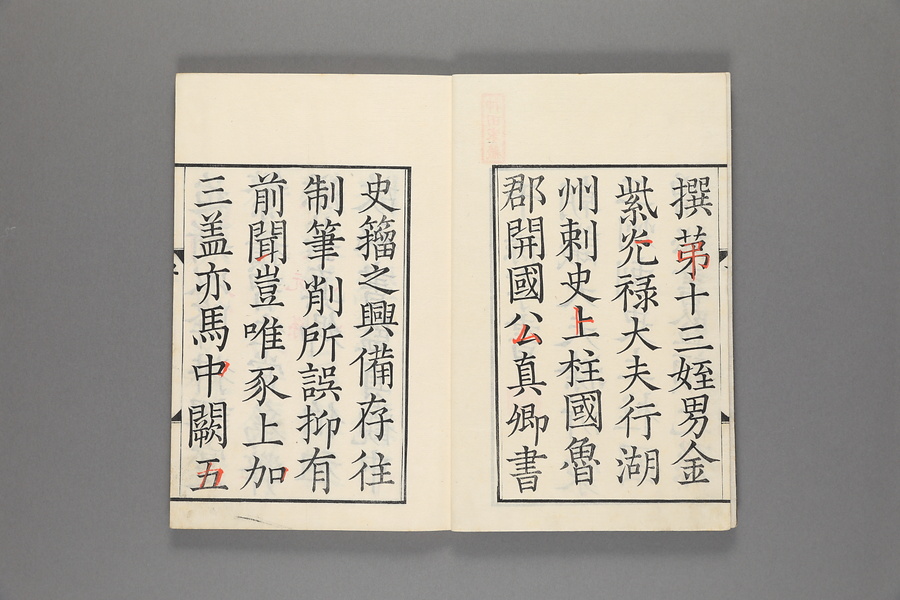 撰苐十三姪男金
紫光禄大夫行湖
州刺史上柱國魯
郡開國公真卿書
史籀之興備存往
制筆削所誤抑有
前聞豈唯豕上加
三盖亦馬中闕五